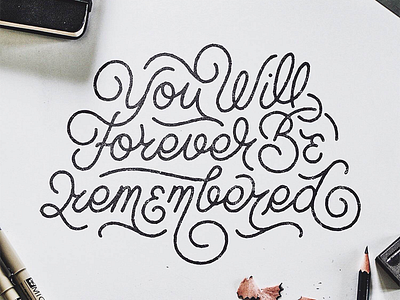 You Will
Forever Be
Remembered